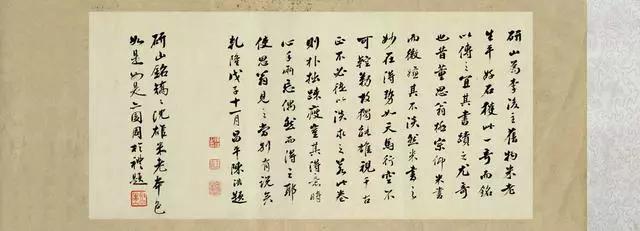 研山為李後主舊物米老
生平好石獲此一奇而銘
以傳之宜其書蹟之尤奇
也昔董思翁極宗仰米書
而微嫌其不淡然米書之
妙在得勢如天馬行空不
可控勒故獨能雄視千古
正不必徒以淡求之若此卷
則朴拙疎瘦豈其得意時
心手兩忘偶然而得之耶
使思翁見之當別有說矣
乾隆戊子十一月昌平陳浩題
研山銘沈雄米老本色
如是如是周於禮題